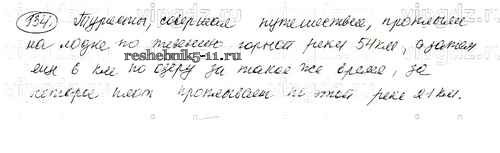 134. Туристы, совершая путешествие, проплыли
на лодке по течению горной реки 54 км, а затем
ещё 6 км по озеру за такое же время, за
reshebnik5-11.ru
которое плот проплывает по этой реке 21 км.